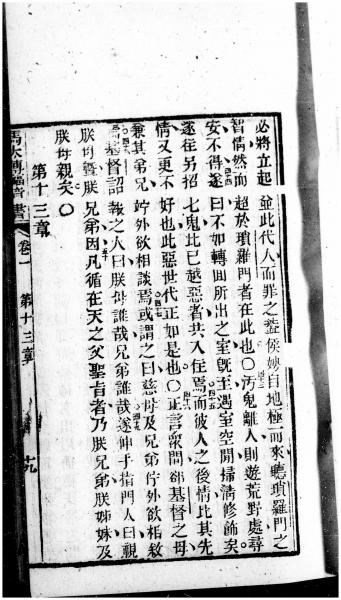 必將立起並此代人而罪之蓋侯自地極而來聽瑣羅門之
智情然而超於瑣羅門者在此也〇汚鬼離人則遊荒野處尋
安不得遂曰不如轉囘所出之室旣至遇室空閒掃清修飾矣
遂往另招七鬼比已越惡者共入住焉而彼人之後情比其先
情又更不好也此惡世代正如是也〇正言衆間卻基督之母
兼其弟兄竚外欲相談焉或謂之曰慈母及兄弟竚外欲相敘
焉基督詔報之人曰朕母誰哉兄弟誰哉遂伸手指門人曰親
朕母暨朕兄弟因凡循在天之父聖旨者乃朕兄弟朕姊妹及
朕母親矣〇
第十三章
馬太傳福音書 卷一 第十三章 十九